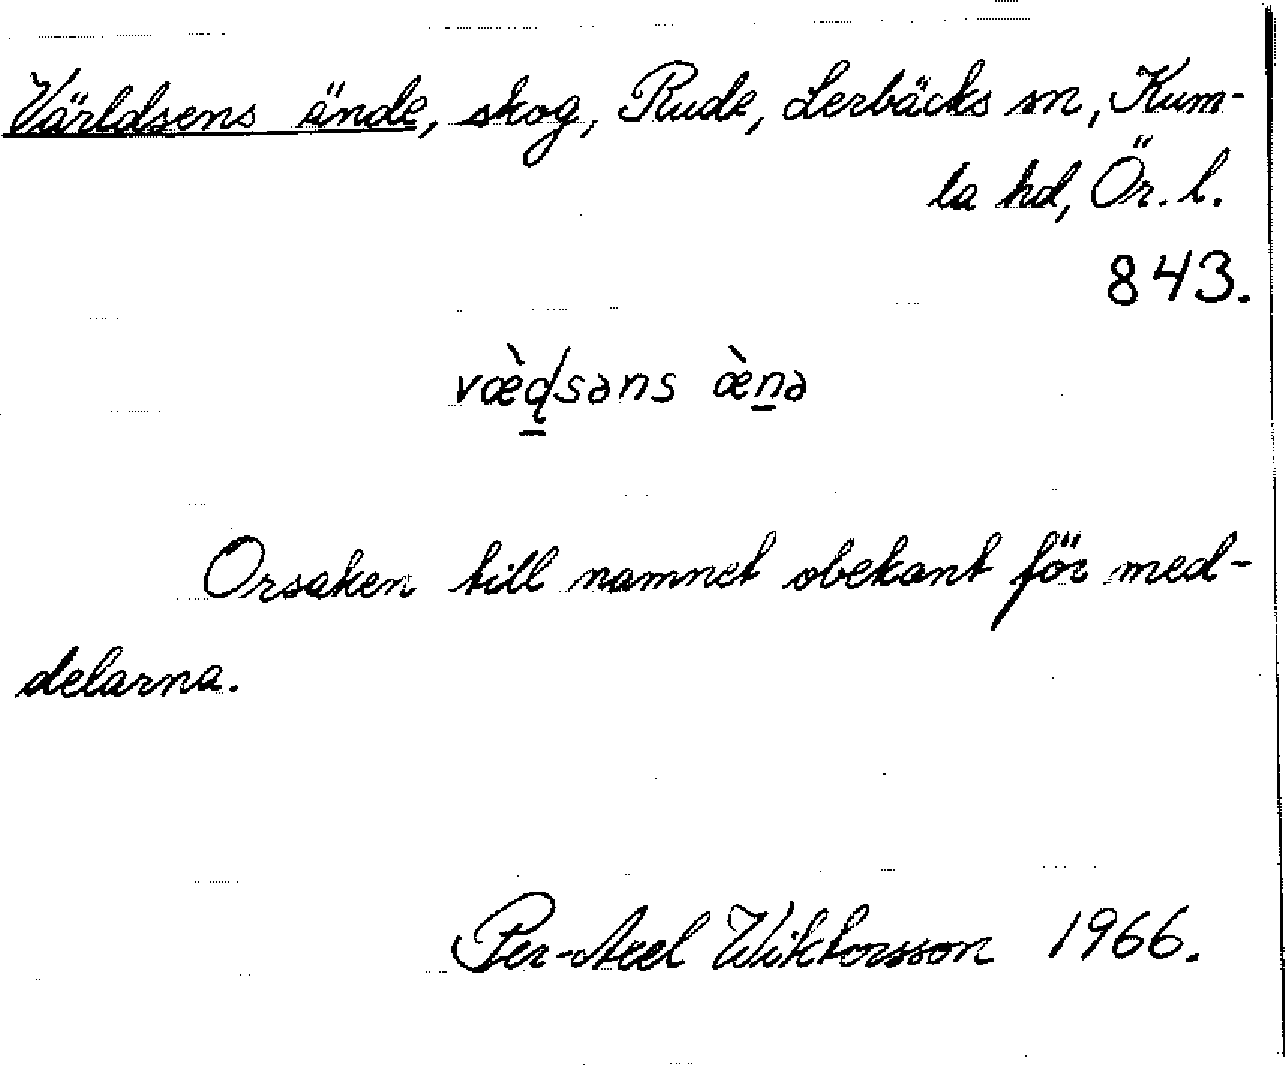 Världsens ände, skog, Rude, Lerbäcks sn, Kum-
la hd, Ör. l.
843.
væ̀ɖsəns æ̀n̠ə
Orsaken till namnet obekant för med-
delarna.
Per-Axel Wiktorsson 1966.